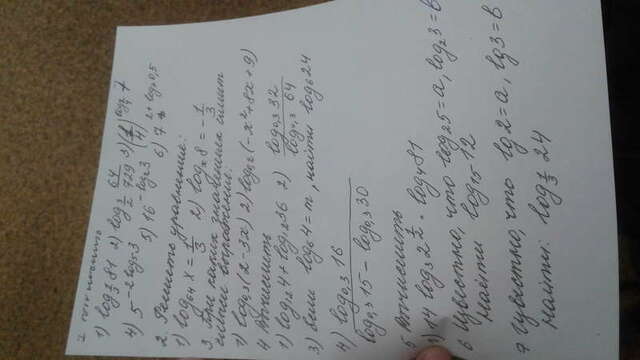 1) log₃ 81 2) log_{1/2} 64 3) (1/2)^{log₂ 7}
4) 5^{-2log₅3} 5) 16^{-log₂3} 6) 7^{2+log₇0,5}
2. Решить уравнение:
1) log₆₄ x = 1/3 2) logₓ 8 = -1/3
3. При каких значениях имеет смысл выражение:
1) log₀,₃(2-3x) 2) log₀,₂(-x²+8x+9)
4 Вычислить
1) log₁₂ 4 + log₁₂ 36 2) log₀,₃ 32 / log₀,₃ 64
3) Если log₆ 4 = n, найти log₆ 24
4) log₀,₃ 16 / (log₀,₃ 15 - log₀,₃ 30)
5 Вычислить
4 log₃ 2 1/2 · log₄ 81
6 Известно, что log₂ 5 = a, log₂ 3 = b
Найти log₁₅ 12
7 Известно, что lg 2 = a, lg 3 = b
Найти: log_{1/3} 24